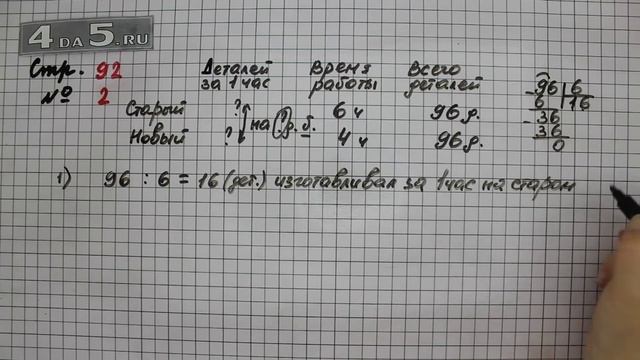 4DA5.RU
Стр. 92
№ 2
Деталей за 1 час
Время работы
Всего деталей
Старый ? 6 ч 96 д.
на ? д. б.
Новый ? 4 ч 96 д.
96 6
6 16
36
36
0
1) 96 : 6 = 16 (дет.) изготавливал за 1 час на старом